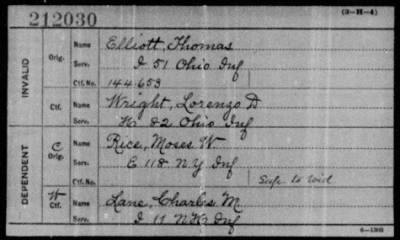 212030
(3-H-4)
INVALID
Orig.
Name Elliott, Thomas
Serv. I 51 Ohio Inf
Ctf. No. 144653
Ctf.
Name Wright, Lorenzo D
Serv. K 82 Ohio Inf
DEPENDENT
C
Orig.
Name Rice, Moses W.
Serv. E 118 N.Y Inf
Ctf. No. Safe to Wid
W
Ctf.
Name Lane, Charles M
Serv. I 11 N.H Inf